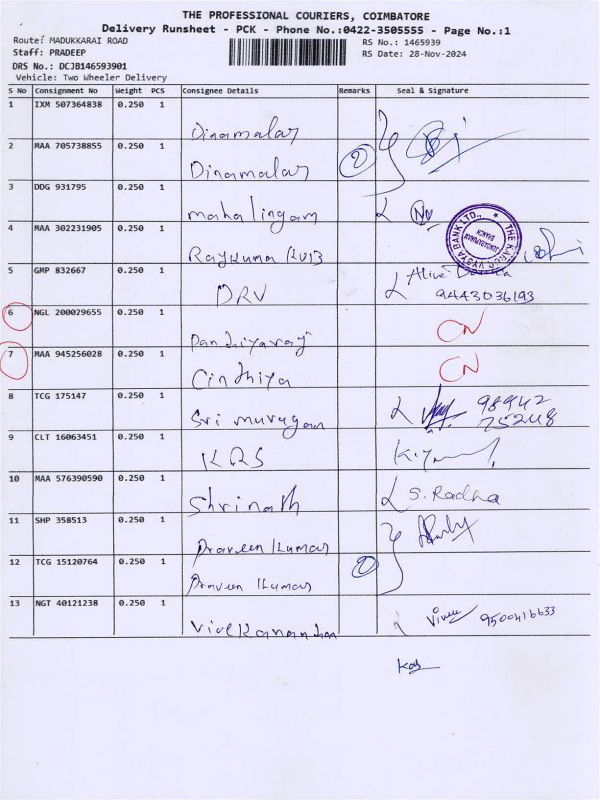 THE PROFESSIONAL COURIERS, COIMBATORE
Delivery Runsheet - PCK - Phone No.:0422-3505555 - Page No.:1
Route: MADUKKARAI ROAD
RS No.: 1465939
Staff: PRADEEP
RS Date: 28-Nov-2024
DRS No.: DCJB146593901
Vehicle: Two Wheeler Delivery
S No Consignment No Weight PCS Consignee Details Remarks Seal & Signature
1 IXM 507364838 0.250 1
Dinamalar
2 MAA 705738855 0.250 1
Dinamalar 2
3 DDG 931795 0.250 1
mahalingam
4 MAA 302231905 0.250 1
THE KARUR VYSYA BANK LTD.,
BRANCH
Rajkumar KVB
5 GMP 832667 0.250 1
DRV
9443036193
6 NGL 200029655 0.250 1
CN
Pandhiyaraj
7 MAA 945256028 0.250 1
CN
Cindhiya
8 TCG 175147 0.250 1
98942
Sri murugan 75248
9 CLT 16063451 0.250 1
KRS
10 MAA 576390590 0.250 1
Shrinath S. Radha
11 SHP 358513 0.250 1
Praveen Kumar
12 TCG 15120764 0.250 1
2
Praveen Kumar
13 NGT 40121238 0.250 1
9500416633
Vivekanandan